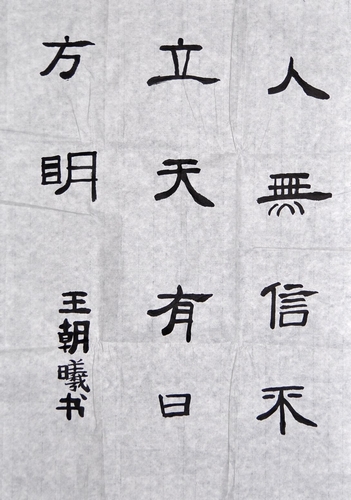 人無信不
立天有日
方明
王朝曦书